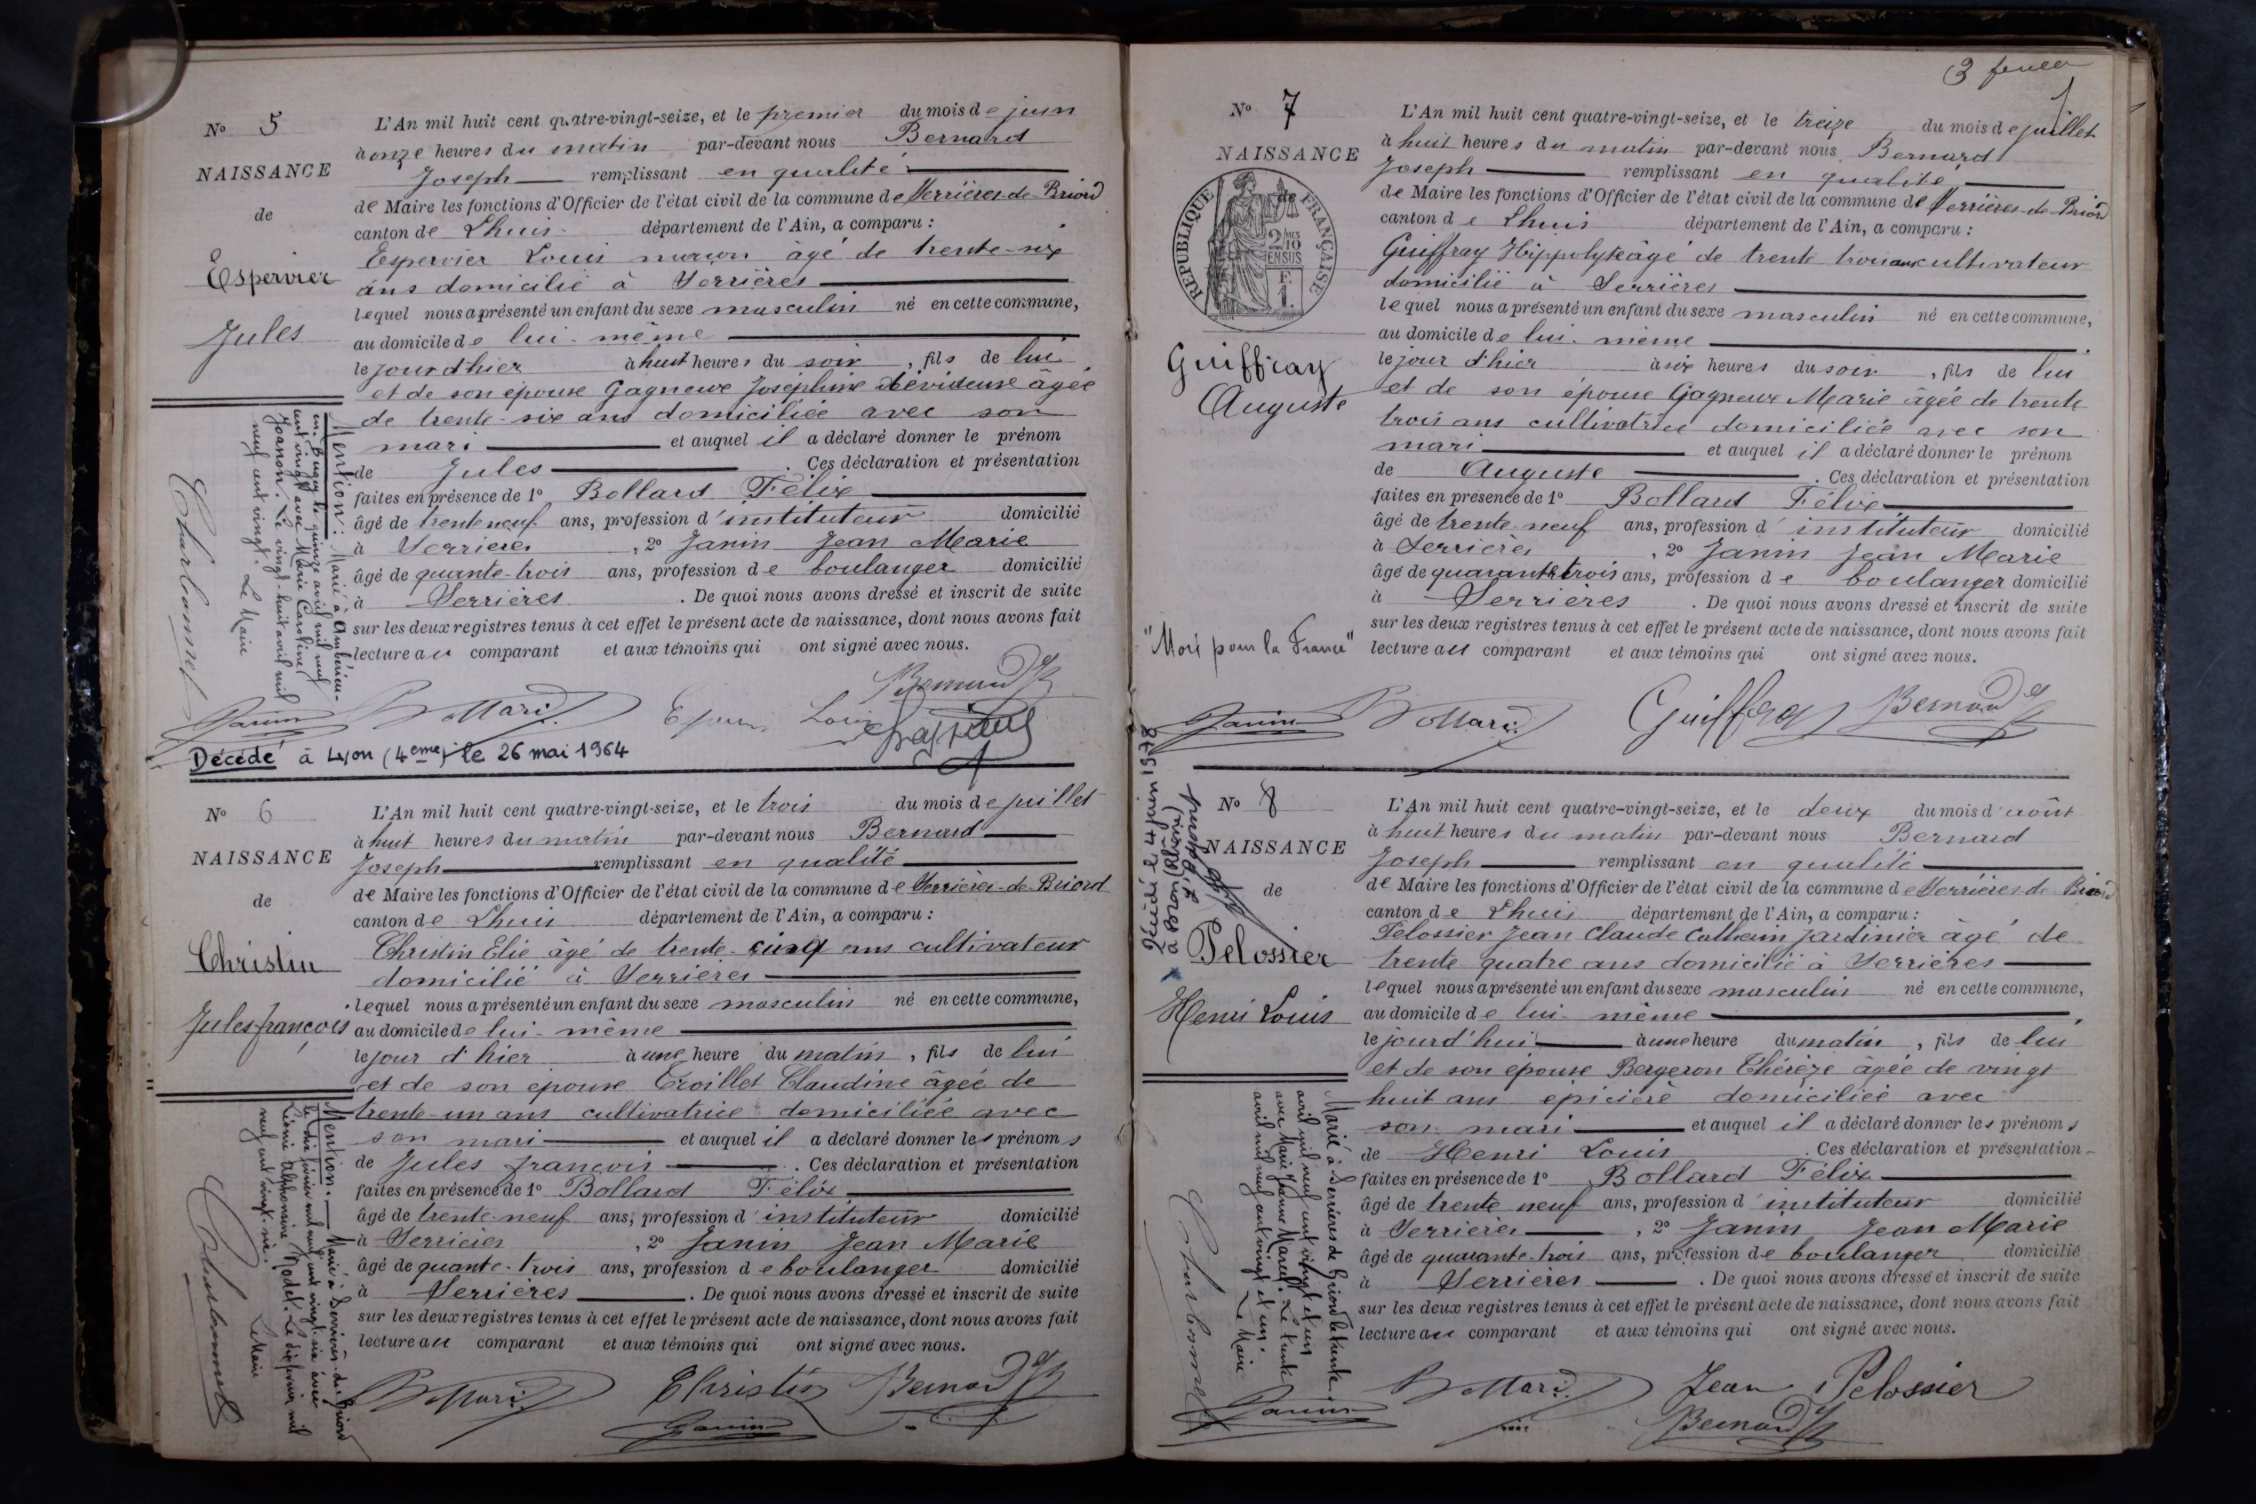 No 5
NAISSANCE
de
Espervier
Jules
L'An mil huit cent quatre-vingt-seize, et le premier du mois de juin
à onze heures du matin par-devant nous Bernard
Joseph remplissant en qualité
de Maire les fonctions d'Officier de l'état civil de la commune de Serrières-de-Briord
canton de Lhuis département de l'Ain, a comparu :
Espervier Louis maçon âgé de trente-six
ans domicilié à Serrières
lequel nous a présenté un enfant du sexe masculin né en cette commune,
au domicile de lui-même
le jour d'hier à huit heures du soir, fils de lui
et de son épouse Gagneux Joséphine dévideuse âgée
de trente-six ans domiciliée avec son
mari et auquel il a déclaré donner le prénom
de Jules. Ces déclaration et présentation
faites en présence de 1o Bollard Félix
âgé de trente neuf ans, profession d'instituteur domicilié
à Serrières, 2o Janin Jean Marie
âgé de quante-trois ans, profession de boulanger domicilié
à Serrières. De quoi nous avons dressé et inscrit de suite
sur les deux registres tenus à cet effet le présent acte de naissance, dont nous avons fait
lecture au comparant et aux témoins qui ont signé avec nous.
Mention : Marié à Ambérieu-
en-Bugey le quinze avril mil neuf
cent vingt avec Marie Caroline
Joanon. Le vingt-huit avril mil
neuf cent vingt. Le Maire
Charbonnet
Janin Bollard Louis Bernard
Décédé à Lyon (4eme) le 26 mai 1964
No 6
NAISSANCE
de
Christin
Jules françois
L'An mil huit cent quatre-vingt-seize, et le trois du mois de juillet
à huit heures du matin par-devant nous Bernard
Joseph remplissant en qualité
de Maire les fonctions d'Officier de l'état civil de la commune de Serrières-de-Briord
canton de Lhuis département de l'Ain, a comparu :
Christin Elie âgé de trente-cinq ans cultivateur
domicilié à Serrières
lequel nous a présenté un enfant du sexe masculin né en cette commune,
au domicile de lui-même
le jour d'hier à une heure du matin, fils de lui
et de son épouse Troillet Claudine âgée de
trente-un ans cultivatrice domiciliée avec
son mari et auquel il a déclaré donner les prénoms
de Jules françois. Ces déclaration et présentation
faites en présence de 1o Bollard Félix
âgé de trente-neuf ans, profession d'instituteur domicilié
à Serrières, 2o Janin Jean Marie
âgé de quante-trois ans, profession de boulanger domicilié
à Serrières. De quoi nous avons dressé et inscrit de suite
sur les deux registres tenus à cet effet le présent acte de naissance, dont nous avons fait
lecture au comparant et aux témoins qui ont signé avec nous.
Mention. Marié à Serrières-de-Briord
le dix février mil neuf cent vingt-six avec
Alphonsine Nodet. Le dix février mil
neuf cent vingt-six. Le Maire
Charbonnet
Bollard Christin Bernard
Janin
3 feuillet
No 7
NAISSANCE
de
REPUBLIQUE FRANÇAISE
2/10
EN SUS
F.
1.
Guiffray
Auguste
L'An mil huit cent quatre-vingt-seize, et le treize du mois de juillet
à huit heures du matin par-devant nous Bernard
Joseph remplissant en qualité
de Maire les fonctions d'Officier de l'état civil de la commune de Serrières-de-Briord
canton de Lhuis département de l'Ain, a comparu :
Guiffray Hippolyte âgé de trente trois ans cultivateur
domicilié à Serrières
lequel nous a présenté un enfant du sexe masculin né en cette commune,
au domicile de lui-même
le jour d'hier à six heures du soir, fils de lui
et de son épouse Gagneux Marie âgée de trente
trois ans cultivatrice domiciliée avec son
mari et auquel il a déclaré donner le prénom
de Auguste. Ces déclaration et présentation
faites en présence de 1o Bollard Félix
âgé de trente-neuf ans, profession d'instituteur domicilié
à Serrières, 2o Janin Jean Marie
âgé de quarante trois ans, profession de boulanger domicilié
à Serrières. De quoi nous avons dressé et inscrit de suite
sur les deux registres tenus à cet effet le présent acte de naissance, dont nous avons fait
lecture au comparant et aux témoins qui ont signé avec nous.
"Mort pour la France"
Janin Bollard Guiffray Bernard
No 8
NAISSANCE
de
Pelossier
Henri Louis
Décédé le 4 juin 1978
à Bron (Rhône)
L'An mil huit cent quatre-vingt-seize, et le deux du mois d'août
à huit heures du matin par-devant nous Bernard
Joseph remplissant en qualité
de Maire les fonctions d'Officier de l'état civil de la commune de Serrières-de-Briord
canton de Lhuis département de l'Ain, a comparu :
Pelossier Jean Claude jardinier âgé de
trente quatre ans domicilié à Serrières
lequel nous a présenté un enfant du sexe masculin né en cette commune,
au domicile de lui-même
le jourd'hui à une heure du matin, fils de lui
et de son épouse Bergeron Thérèze âgée de vingt
huit ans épicière domiciliée avec
son mari et auquel il a déclaré donner les prénoms
de Henri Louis. Ces déclaration et présentation
faites en présence de 1o Bollard Félix
âgé de trente neuf ans, profession d'instituteur domicilié
à Serrières, 2o Janin Jean Marie
âgé de quarante-trois ans, profession de boulanger domicilié
à Serrières. De quoi nous avons dressé et inscrit de suite
sur les deux registres tenus à cet effet le présent acte de naissance, dont nous avons fait
lecture au comparant et aux témoins qui ont signé avec nous.
Marié à Serrières de Briord le trente
avril mil neuf cent vingt et un
avec Marie Jeanne Marcel. Le trente
avril mil neuf cent vingt et un.
Le Maire
Charbonnet
Janin Bollard Jean Pelossier
Bernard